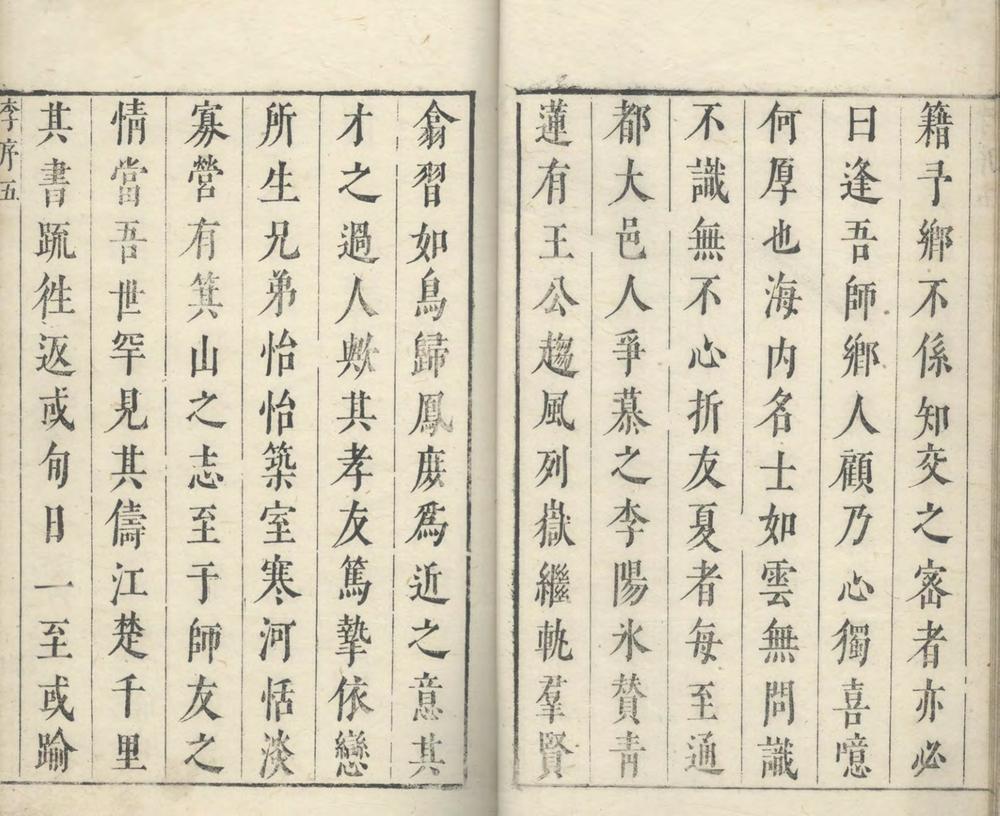 籍予鄉不係知交之宻者亦必
曰逢吾師鄉人顧乃心獨喜噫
何厚也海内名士如雲無問識
不識無不心折友夏者每至通
都大邑人爭慕之李陽氷賛青
蓮有王公趨風列嶽繼軌羣賢
翕習如鳥歸鳳庻爲近之意其
才之過人歟其孝友篤摯依戀
所生兄弟怡怡築室寒河恬淡
寡營有箕山之志至于師友之
情當吾世罕見其儔江楚千里
其書䟽徃返或旬日一至或踰
李序五